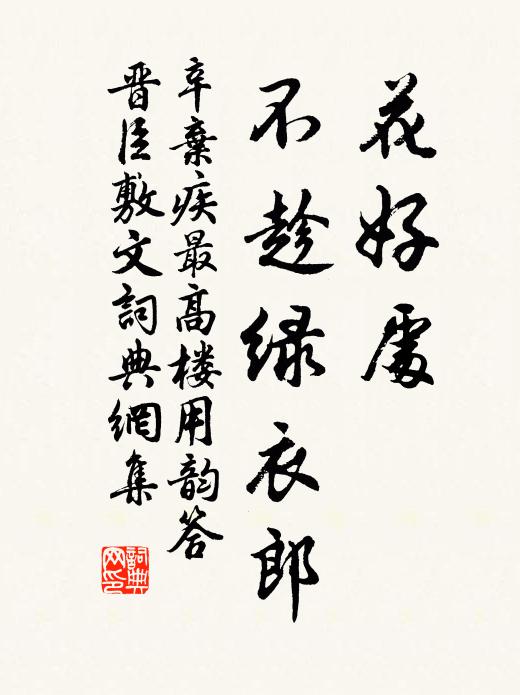 花好處
不趁綠衣郎
辛棄疾最高楼用韵答
晋臣敷文詞典網集
詞典网印